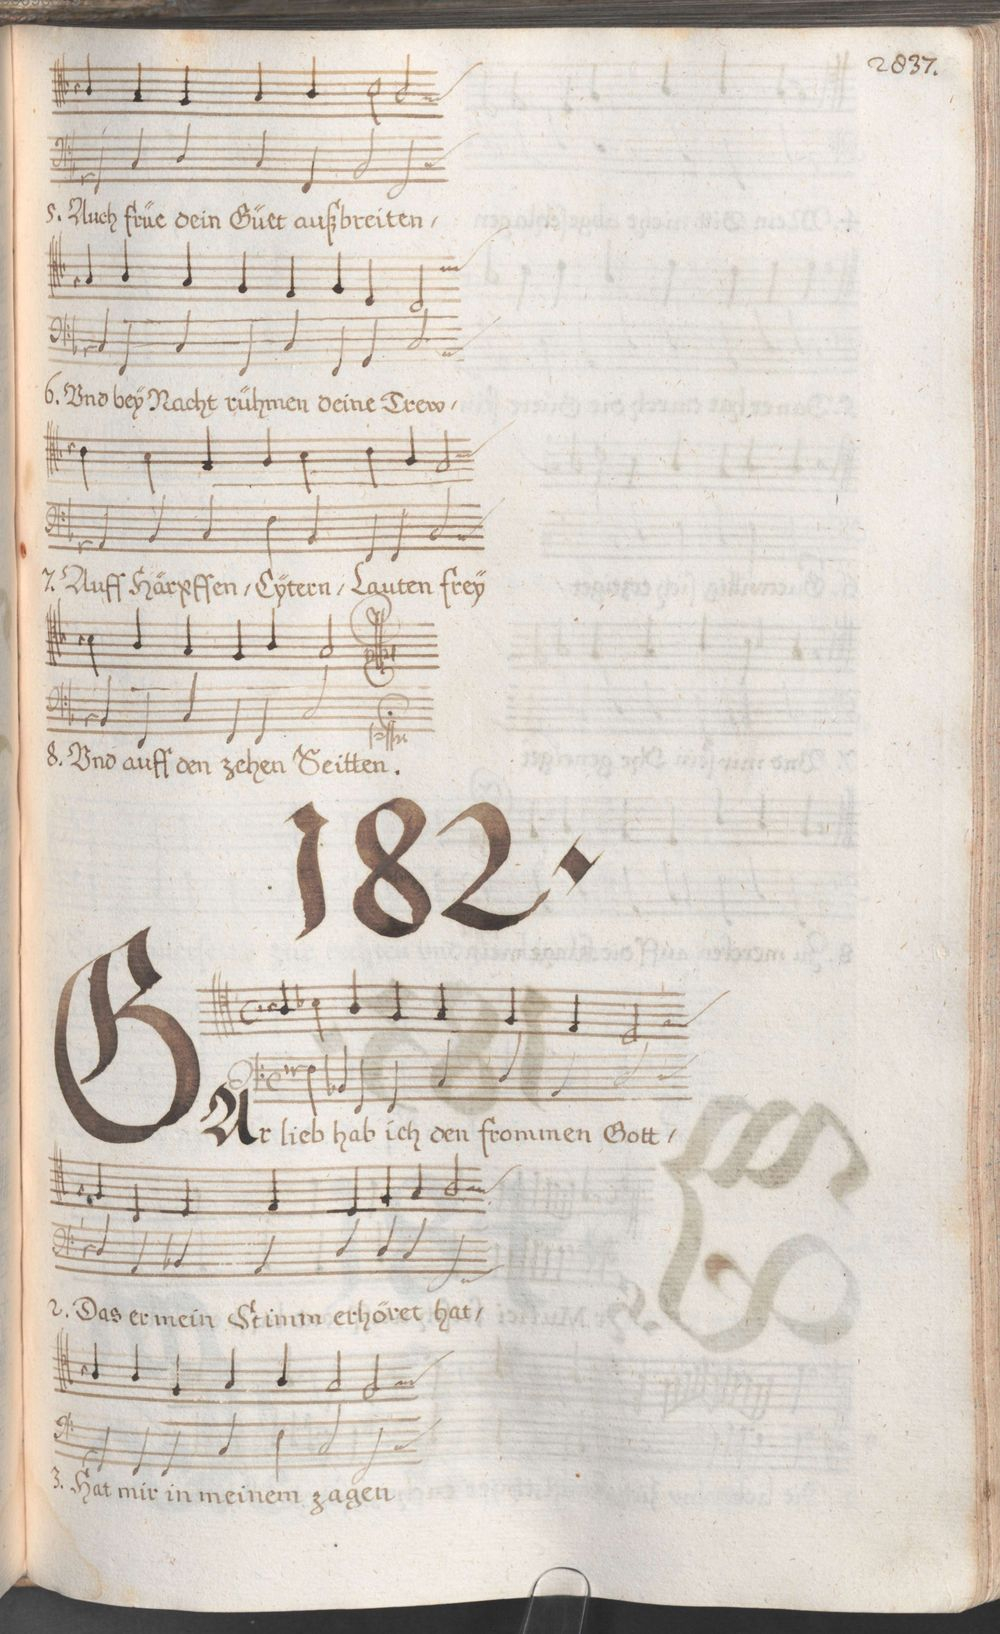 2837.
5. Auch früe dein Güet außbreiten /
6. Vnd beÿ Nacht rühmen deine Trew /
7. Auff Härpffen / Cÿtern / Lauten freÿ
8. Vnd auff den zehen Seitten.
182.
GAr lieb hab ich den frommen Gott /
2. Das er mein Stimm erhöret hat /
3. Hat mir in meinem zagen